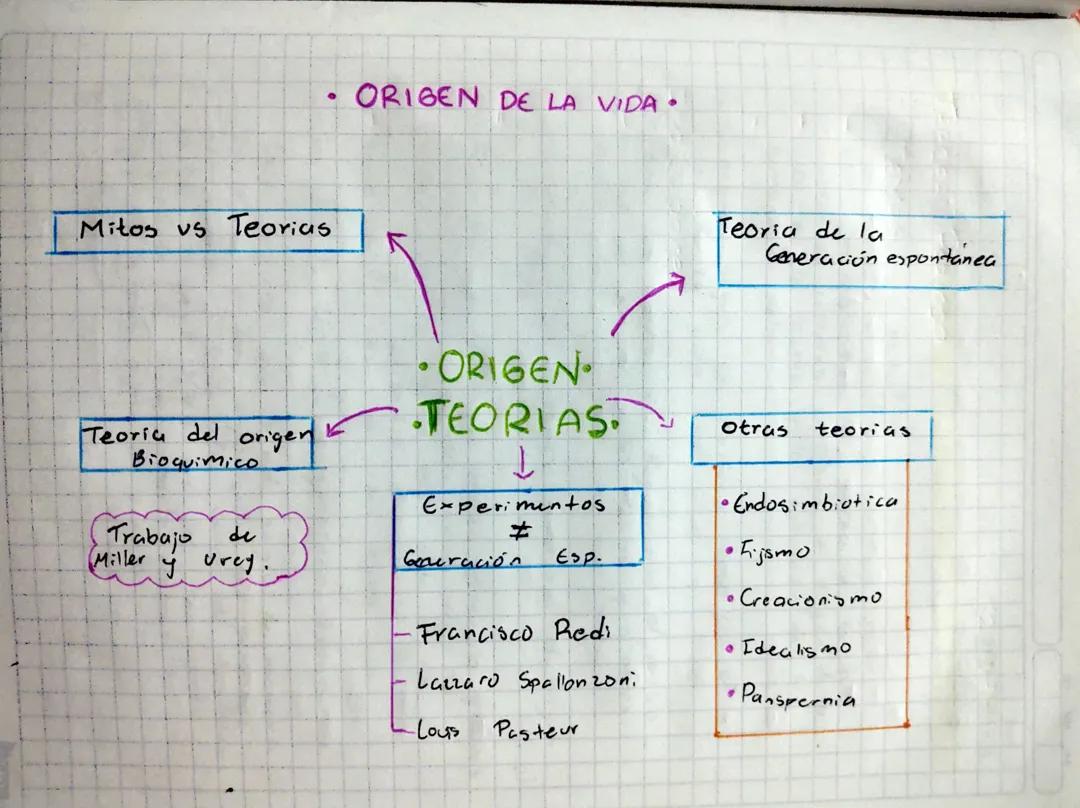 · ORIGEN DE LA VIDA ·
Mitos vs Teorias
Teoria de la
Generación espontánea
· ORIGEN ·
· TEORIAS ·
Teoria del origen
Bioquimico
Trabajo de
Miller y Urey.
Experimentos
≠
Generación Esp.
- Francisco Redi
- Lazzaro Spallonzoni
- Louis Pasteur
otras teorias
• Endosimbiotica
• Fijismo
• Creacionismo
• Idealismo
• Paspernia